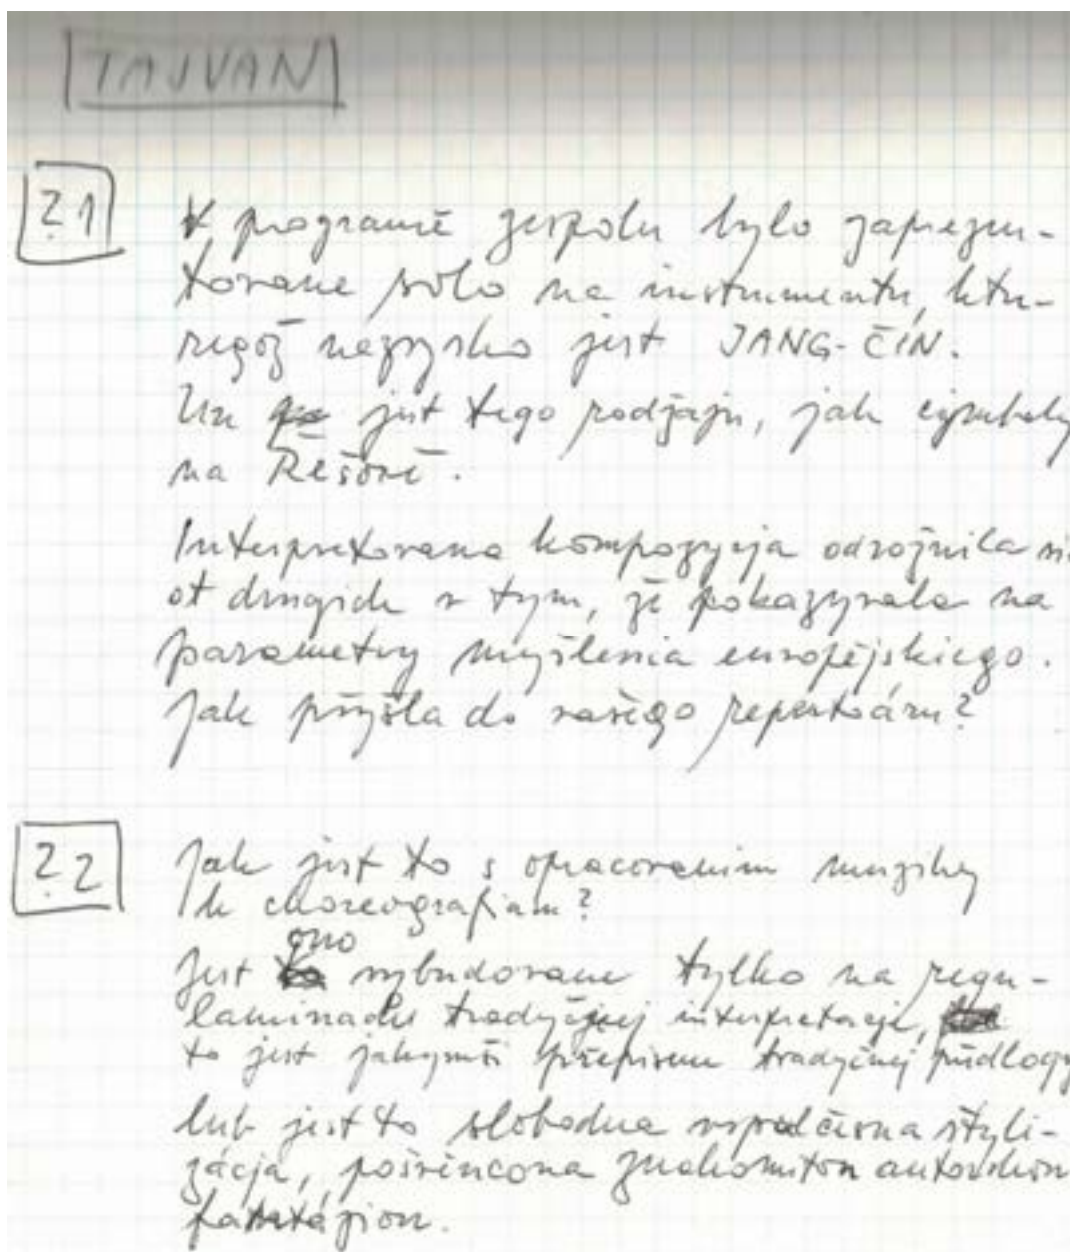 TAJVAN
?1
V programě zespolu bylo zaprezen-
továne sólo na instrumentu, ktu-
regož nazvysko jest JANG-ČÍN.
Un jest tego rodzaju, jak cymbaly
na Rešově.
Interpretovana kompozycja odrožnila
ot drugich v tym, že pokazyvala na
parametry myšlenia europějskiego.
Jak přyšla do vašego repertoáru?
?2
Jak jest to s opracovanim muziky
k choreografiam?
ono
Jest vybudovane tylko na regu-
laminach tradyčnej interpretacji,
to jest jakymsi přepisem tradyčnej půdlogy
lub jest to slobodna vspulčesna štyli-
zácja, pošvincona znakomitou autorskou
fantázion.